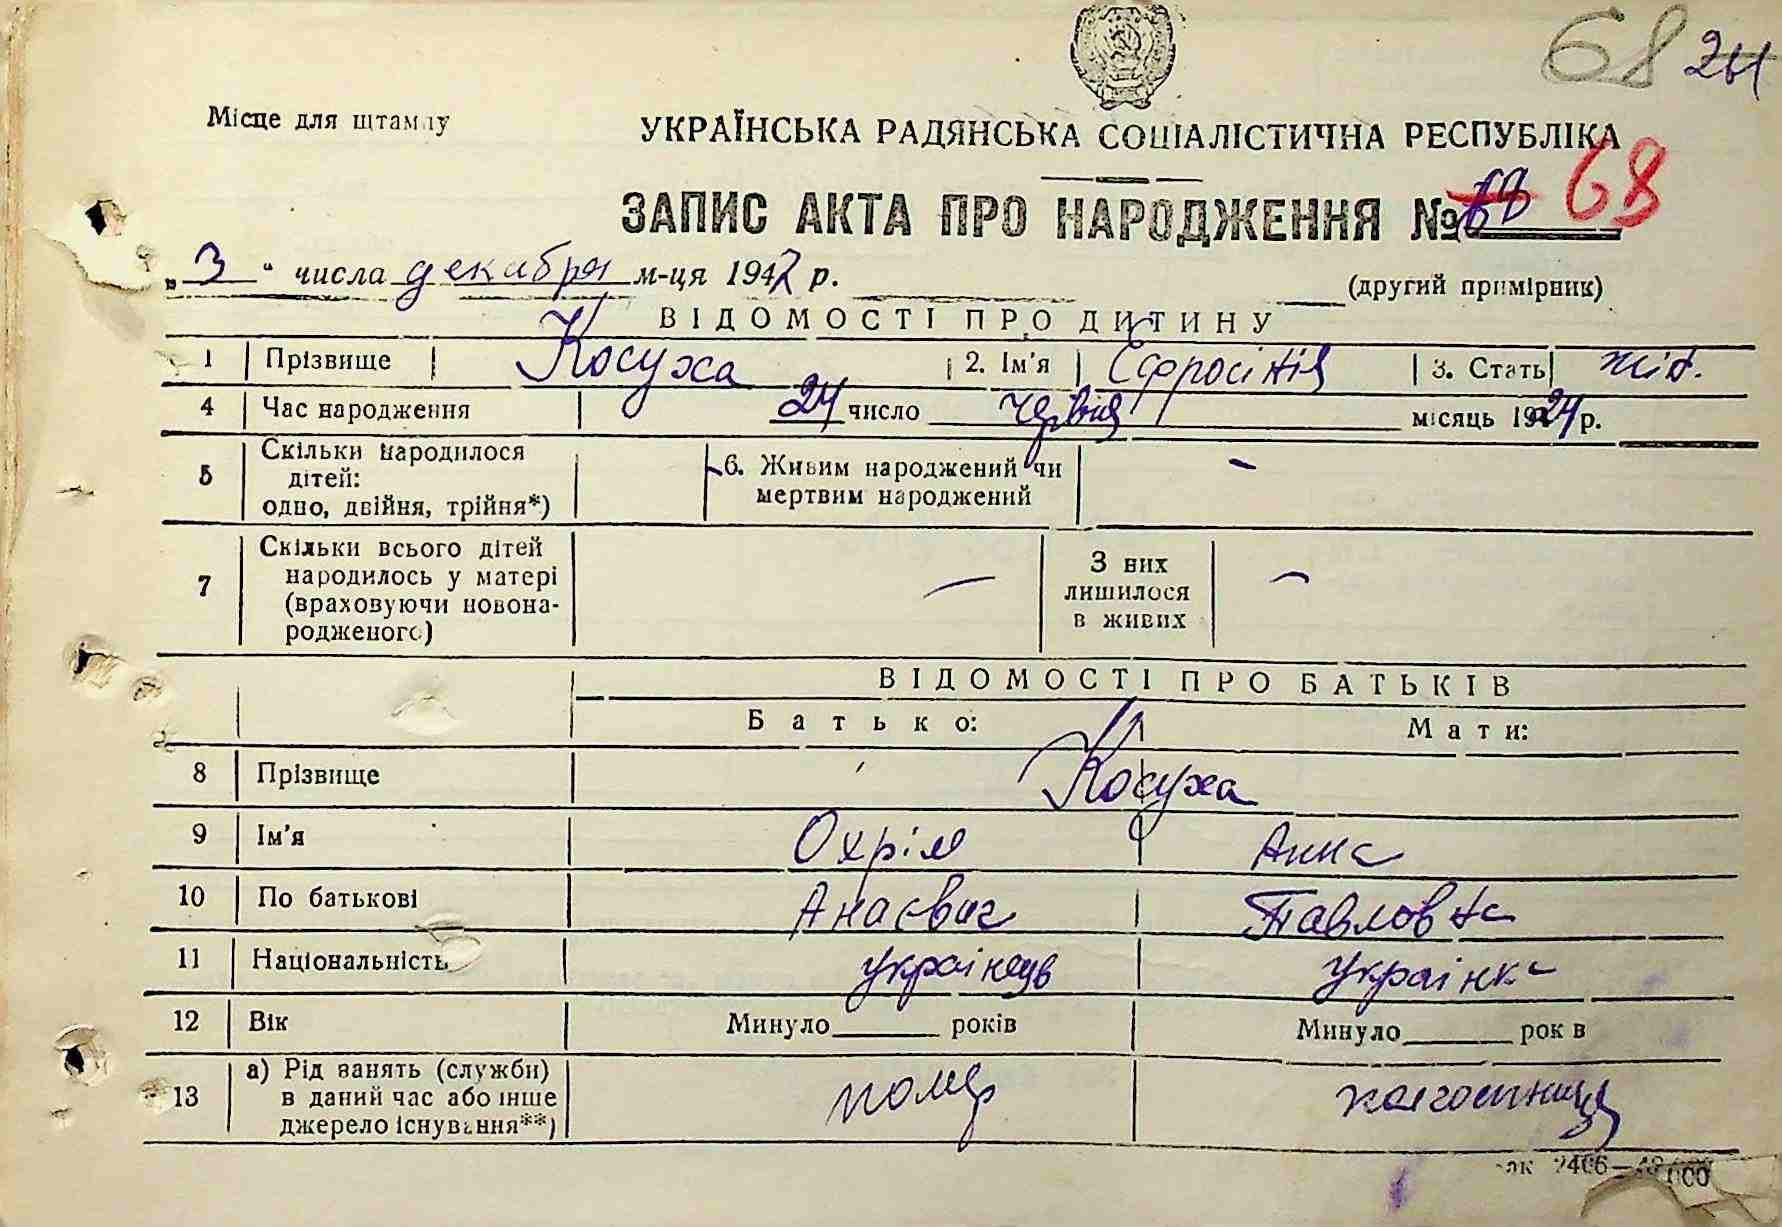 68 24
Місце для штампу
УКРАЇНСЬКА РАДЯНСЬКА СОЦІАЛІСТИЧНА РЕСПУБЛІКА
ЗАПИС АКТА ПРО НАРОДЖЕННЯ № 68 68
„3“ числа декабря м-ця 1947 р.
(другий примірник)
ВІДОМОСТІ ПРО ДИТИНУ
1 Прізвище Косуха 2. Ім'я Єфросінія 3. Стать жін.
4 Час народження 24 число червня місяць 1924 р.
5 Скільки народилося дітей: одно, двійня, трійня*) 6. Живим народжений чи мертвим народжений –
7 Скільки всього дітей народилось у матері (враховуючи новонародженого) – З них лишилося в живих –
ВІДОМОСТІ ПРО БАТЬКІВ
Батько: Мати:
8 Прізвище Косуха
9 Ім'я Охрім Анна
10 По батькові Павловна
11 Національність українець українка
12 Вік Минуло____ років Минуло____ рок в
13 а) Рід занять (служби) в даний час або інше джерело існування**) помер колгоспниця